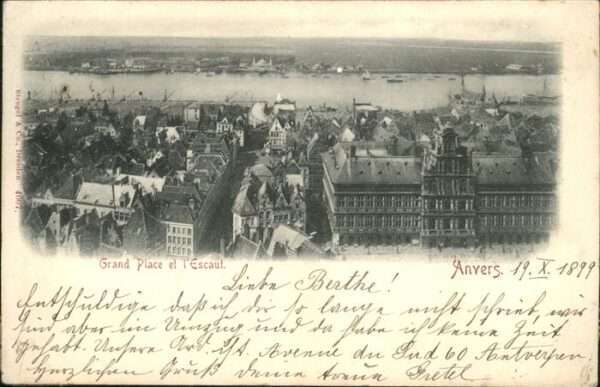 Stengel & Co., Dresden 4007.
Grand Place et l'Escaut.
Anvers. 19. X. 1899
Liebe Berthe!
Entschuldige dass ich dir so lange nicht schrieb, wir
sind aber im Umzug und da habe ich keine Zeit
gehabt. Unsere Adr. ist. Avenue du Sud 60 Antwerpen.
Herzlichen Gruß deine treue Gretel